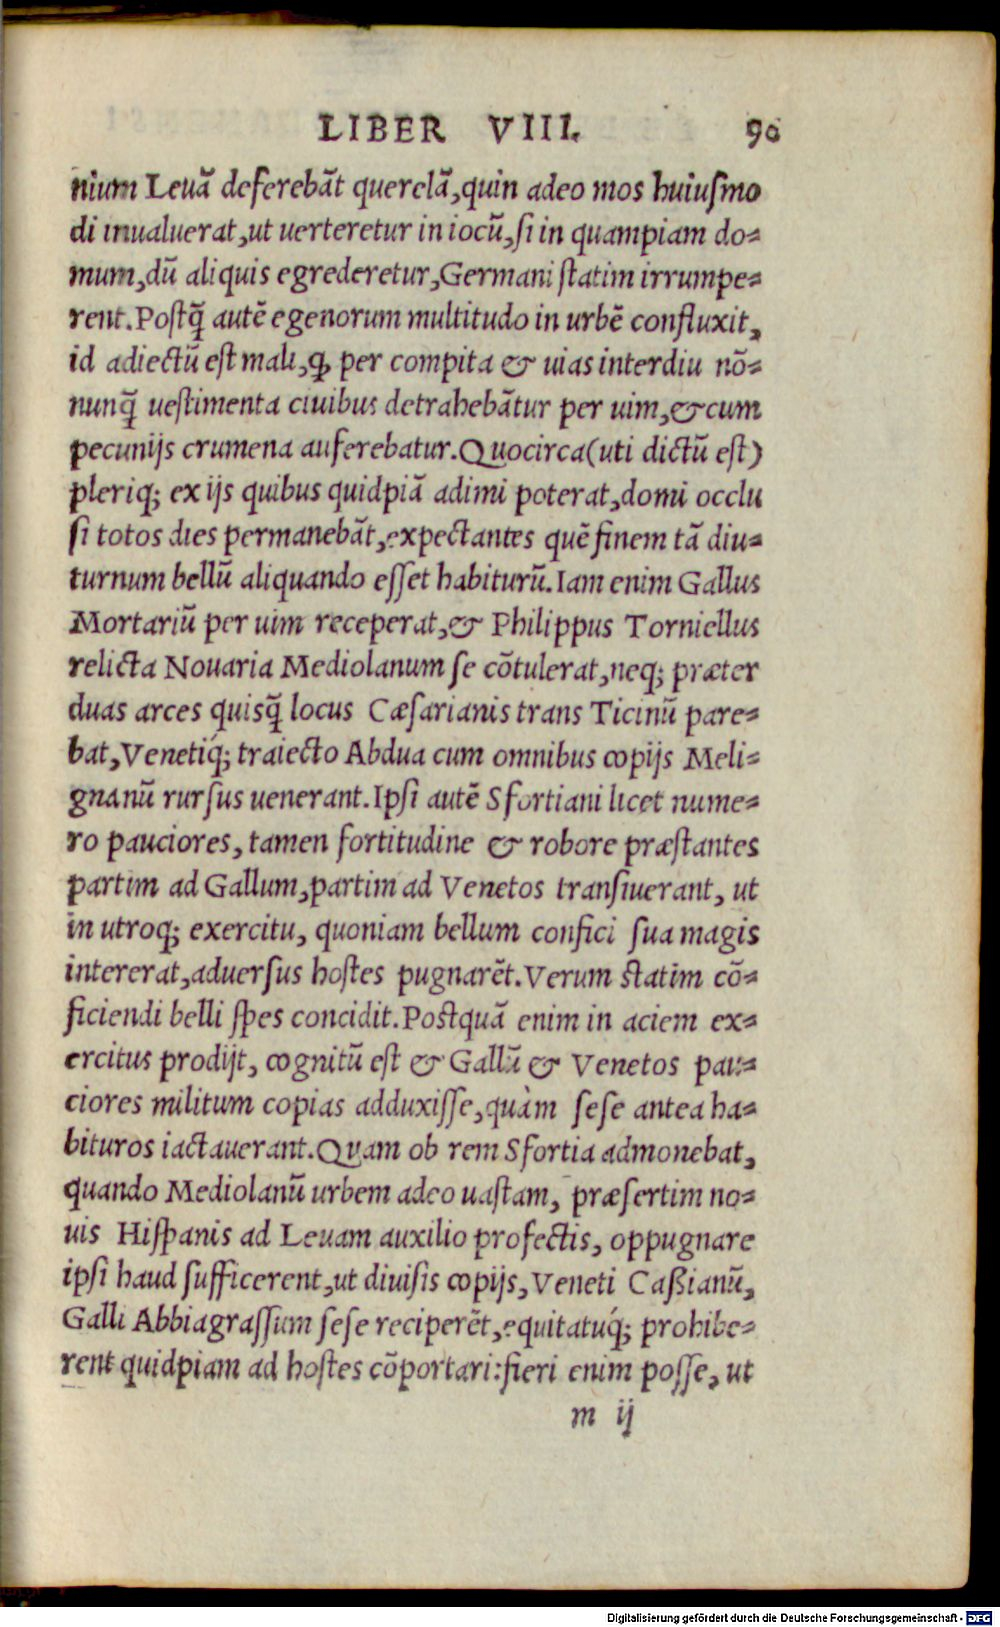 LIBER VIII. 90
nium Leuā deferebāt querelā,quin adeo mos huiuſmo
di inualuerat,ut uerteretur in iocū,ſi in quampiam do-
mum,dū aliquis egrederetur,Germani ſtatim irrumpe-
rent.Poſtq̄ autē egenorum multitudo in urbē confluxit,
id adiectū eſt mali,ꝙ per compita & uias interdiu nō-
nunq̄ ueſtimenta ciuibus detrahebātur per uim,&cum
pecunijs crumena auferebatur.Quocirca(uti dictū eſt)
pleriq; ex ijs quibus quidpiā adimi poterat,domi occlu
ſi totos dies permanebāt,expectantes quē finem tā diu-
turnum bellū aliquando eſſet habiturū.Iam enim Gallus
Mortariū per uim receperat,& Philippus Torniellus
relicta Nouaria Mediolanum ſe cōtulerat,neq; præter
duas arces quisq̄ locus Cæſarianis trans Ticinū pare-
bat,Venetiq́; traiecto Abdua cum omnibus copijs Meli-
gnanū rurſus uenerant.Ipſi autē Sfortiani licet nume-
ro pauciores, tamen fortitudine & robore præſtantes
partim ad Gallum,partim ad Venetos tranſiuerant, ut
in utroq; exercitu, quoniam bellum confici ſua magis
intererat,aduerſus hoſtes pugnarēt.Verum ſtatim cō-
ficiendi belli ſpes concidit.Poſtquā enim in aciem ex-
ercitus prodijt, cognitū eſt & Gallū & Venetos pau-
ciores militum copias adduxiſſe,quàm ſeſe antea ha-
bituros iactauerant.Quam ob rem Sfortia admonebat,
quando Mediolanū urbem adeo uaſtam, præſertim no-
uis Hiſpanis ad Leuam auxilio profectis, oppugnare
ipſi haud ſufficerent,ut diuiſis copijs, Veneti Caßianū,
Galli Abbiagraſſum ſeſe reciperēt,equitatuq́; prohibe-
rent quidpiam ad hoſtes cōportari:fieri enim poſſe, ut
m ij
Digitalisierung gefördert durch die Deutsche Forschungsgemeinschaft - DFG